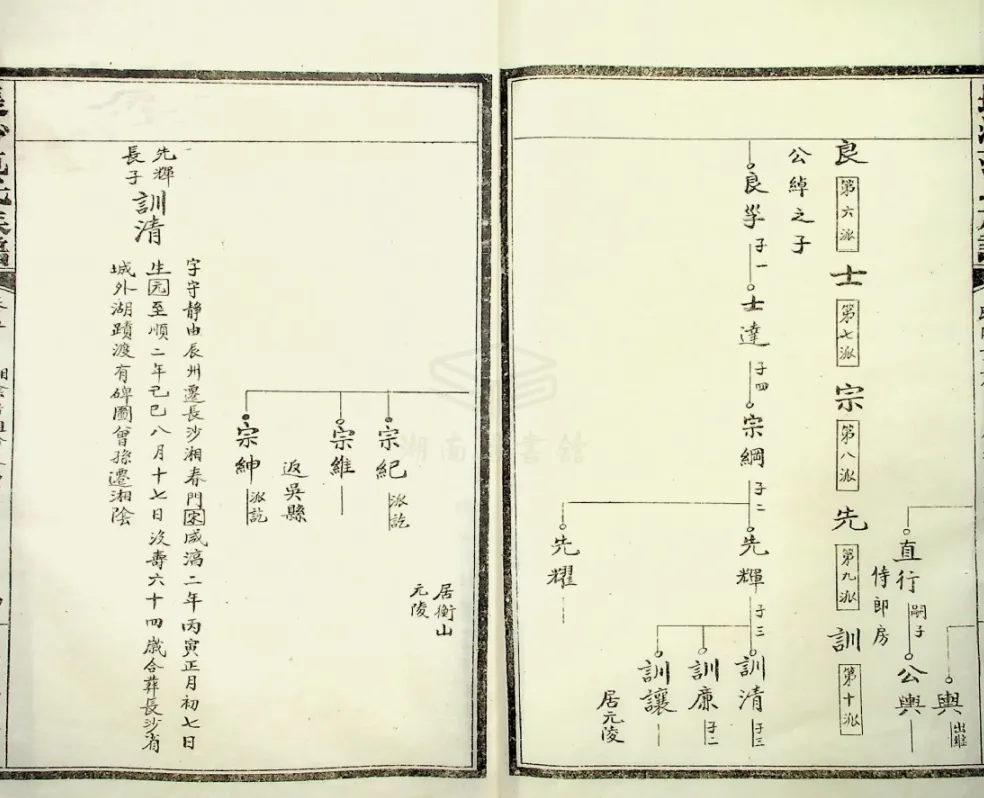 輿
出繼
直行
侍郎房
嗣子
公輿
良
第六派
士
第七派
宗
第八派
先
第九派
訓
第十派
公綽之子
良孚
子一
士達
子四
宗綱
子二
先輝
子三
訓清
子三
訓廉
子二
訓讓
居元陵
先耀
居衡山
元陵
宗紀
派訖
宗維
返吳縣
宗紳
派訖
先輝
長子
訓清
字守靜由辰州遷長沙湘春門宋咸漓二年丙寅正月初七日
生元至順二年己巳八月十七日沒壽六十四歲合葬長沙省
城外湖蹟渡有碑圖曾孫遷湘陰
湖南圖書館